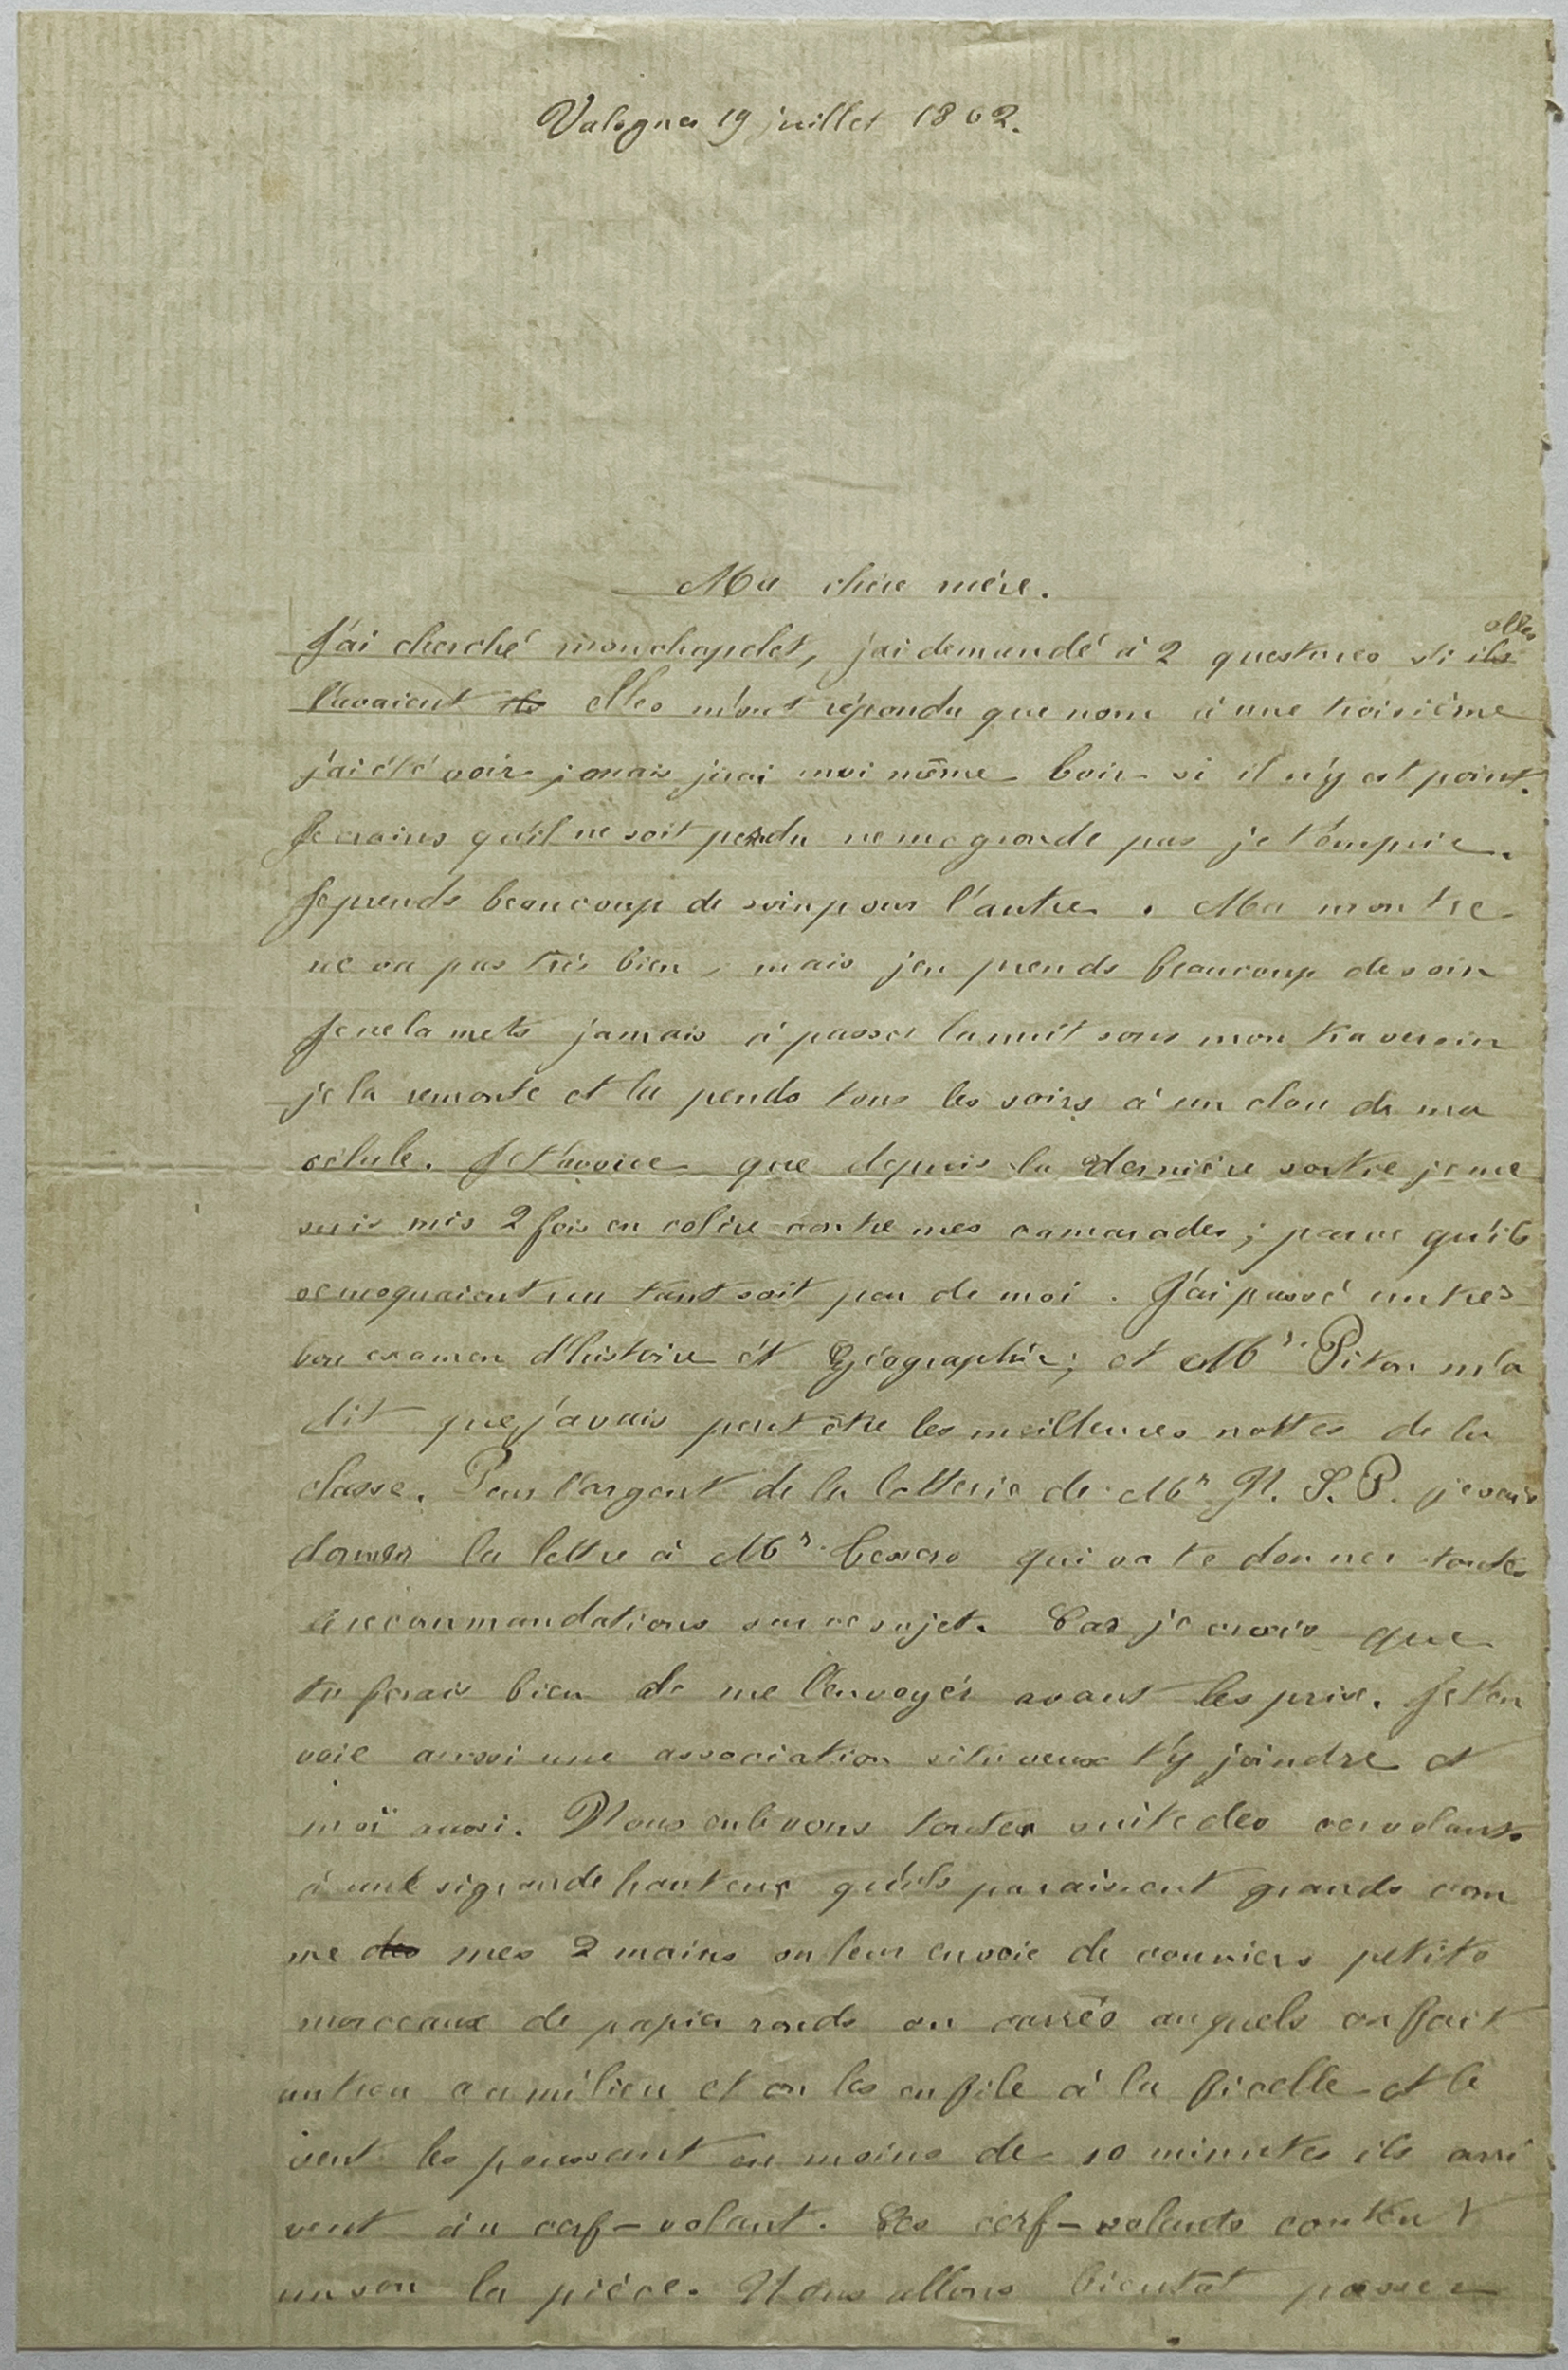 Valognes 19 juillet 1862.
Ma chère mère.
J'ai cherché mon chapelet, j'ai demandé à 2 questures si ils elles
l'avaient ils elles m'ont répondu que nom à une troisième
j'ai été voir j'irai moi même voir si il n'y est point.
Je crains qu'il ne soit perdu ne me gronde pas je t'emprie.
Je prends beaucoup de soin pour l'autre. Ma montre
ne va pas très bien, mais j'en prends beaucoup de soin
Je ne la mets jamais à passer la nuit sous mon traversin
je la remonte et la pends tous les soirs à un clou de ma
célule. Je t'avoue que depuis la dernière sortie je me
suis mis 2 fois en colère contre mes camarades; parce qu'ils
se moquaient un tant soit peu de moi. J'ai passé un très
bon examen d'histoire et Géographie; et Mr. Piton m'a
dit que j'avais peut être les meilleures nottes de la
classe. Pour l'argent de la lotterie de Mr N. S. P. je vais
donner la lettre à Mr. qui va te donner toutes
recommandations sur ce sujet. Car je crois que
tu ferais bien de me l'envoyer avant les prix. Je t'en
voie aussi une association si tu veux t'y joindre et
moï aussi. Nous enlevons toutes suite des cervolants
à une si grande hauteur qu'ils paraissent grands com
me des mes 2 mains on leur envoie de courriers petits
morceaux de papier ronds ou carrés auquels on fait
un trou au milieu et on les enfile à la ficelle et le
vent les poussant en moins de 10 minutes ils arri
vent au cerf-volant. Les cerf-volants content
un sou la pièce. Nous allons bientôt passer